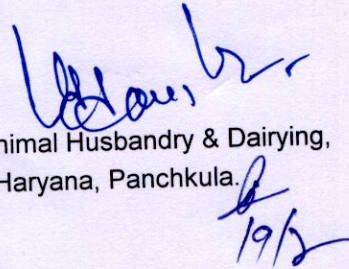 nimal Husbandry & Dairying,
Haryana, Panchkula.
19/2